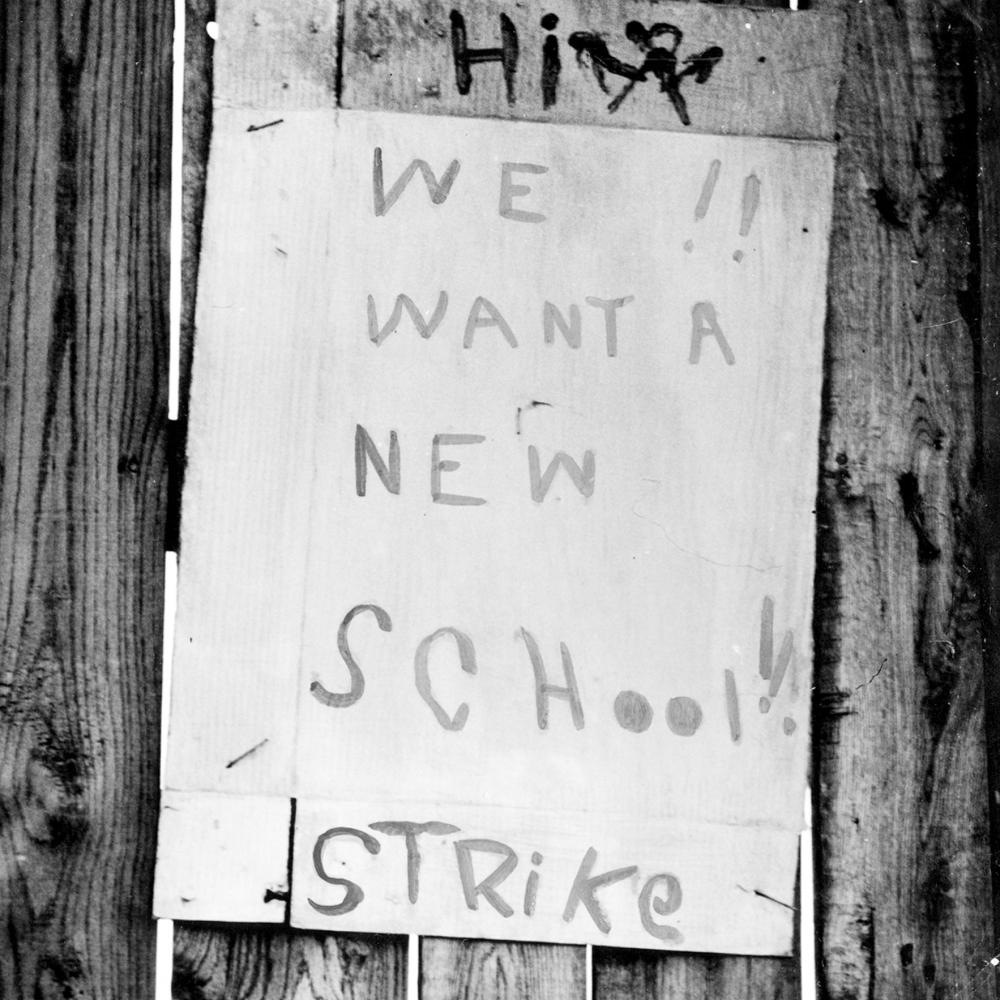 Hi
WE !!
WANT A
NEW
SCHool!!
STRiKe